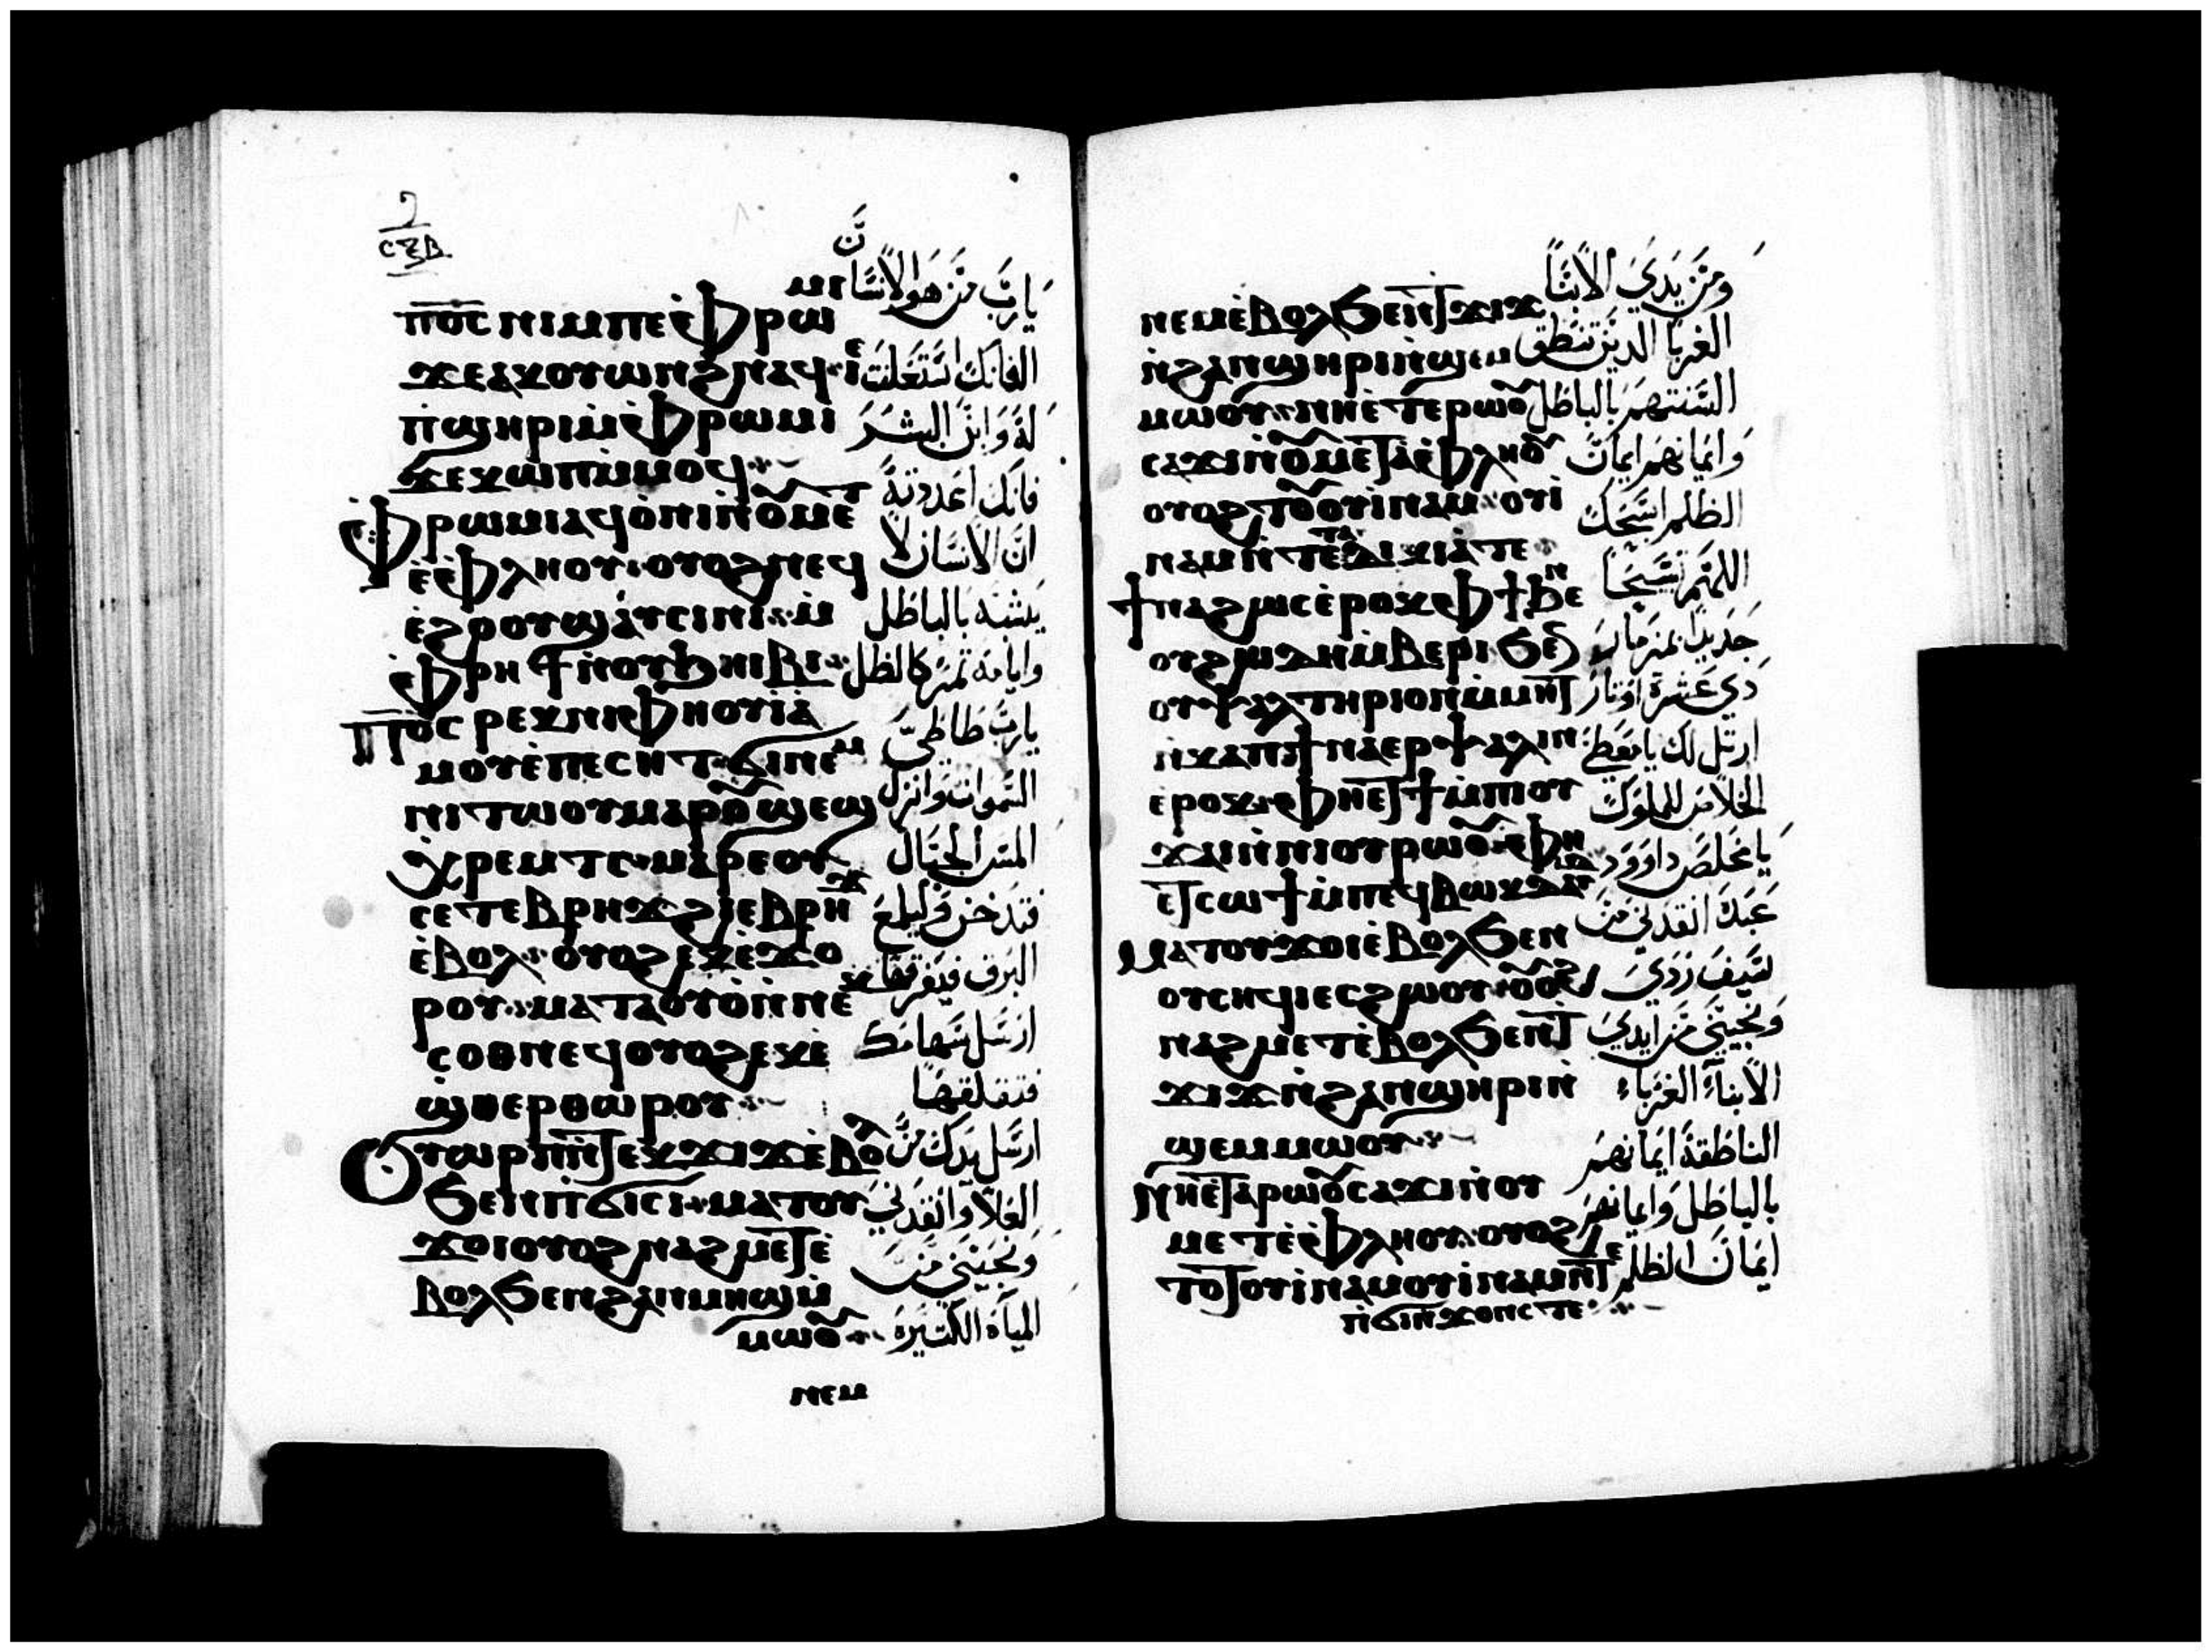 ⲥⲝⲃ
ⲡ̅ⲟ̅ⲥ̅ ⲛⲓⲙ ⲡⲉ ⲫ̀ⲣⲱⲙⲓ
ϫⲉ ⲁⲕⲟⲩⲱⲛϩ ⲛⲁϥ ⲓⲉ
ⲡ̀ϣⲏⲣⲓ ⲙ̀ⲫ̀ⲣⲱⲙⲓ
ϫⲉ ⲭⲱⲡ ⲙ̀ⲙⲟϥ
ⲫ̀ⲣⲱⲙⲓ ⲁϥⲟ̀ⲛⲓ ⲛ̀ⲟⲩⲙⲉⲧ
ⲉ̀ⲫ̀ⲗⲏⲟⲩ ⲟⲩⲟϩ ⲛⲉϥ
ⲉ̀ϩⲟⲟⲩ ϣⲁⲩⲥⲓⲛⲓ ⲙ̀
ⲫ̀ⲣⲏϯ ⲛ̀ⲟⲩϧⲏⲓⲃⲓ
ⲡ̅ⲟ̅ⲥ̅ ⲣⲉⲕ ⲛⲓⲫⲏⲟⲩⲓ̀ ⲁ̀
ⲙⲟⲩ ⲉ̀ⲡⲉⲥⲏⲧ ϭⲓ ⲛⲉⲙ
ⲛⲓⲧⲱⲟⲩ ⲙⲁⲣⲟⲩϣⲉϣ
ⲭ̀ⲣⲉⲙⲧⲥ ⲙⲁⲣⲉ ⲟⲩ
ⲥⲉⲧⲉⲃⲣⲏϫ ϩⲓ ⲉⲃⲣⲏϫ
ⲉ̀ⲃⲟⲗ ⲟⲩⲟϩ ⲉⲕⲉ̀ϫⲟ
ⲣⲟⲩ ⲙⲁ ⲧⲁⲟⲩⲟ̀ ⲛ̀ⲛⲉ
ⲥⲟⲑⲛⲉϥ ⲟⲩⲟϩ ⲉⲕⲉ̀
ϣ̀ⲑⲉⲣⲑⲱⲣⲟⲩ
ⲟⲩⲱⲣⲡ ⲛ̀ⲧⲉⲕϫⲓϫ ⲉ̀ⲃⲟⲗ
ϧⲉⲛ ⲡ̀ϭⲓⲥⲓ ⲙⲁⲧⲟⲩ
ϫⲟⲓ ⲟⲩⲟϩ ⲛⲁϩⲙⲉⲧ ⲉ̀
ⲃⲟⲗ ϧⲉⲛ ϩⲁⲛⲙⲏϣ ⲙ̀
ⲙⲱⲟⲩ
ⲛⲉⲙ
يا رب من هو الانسان
الفانك استعلنت
له وابن البشر
فانك اعددته
ان الانسان لا
يشبه بالباطل
وايامه تمر كالظل
يا رب طاطي
السموات وانزل
المس الجبال
فتدخن وليلمع
البرق فيفرقها
ارسل سهامك
فتقلقها
ارسل يدك من
العلا وانقذني
ونجيني من
المياه الكثيرة
ⲛⲉⲙ ⲉ̀ⲃⲟⲗ ϧⲉⲛ ⲧϫⲓϫ
ⲛ̀ϩⲁⲛϣⲏⲣⲓ ⲛ̀ϣⲉⲙ
ⲙⲱⲟⲩ ⲛⲏⲉ̀ⲧⲉ ⲣⲱⲟⲩ
ⲥⲁϫⲓ ⲛ̀ⲟⲩⲙⲉⲧⲁⲉ̀ⲫ̀ⲗⲏⲟⲩ
ⲟⲩⲟϩ ⲧⲟⲩⲟⲩⲓ̀ⲛⲁⲙ ⲟⲩⲓ̀
ⲛⲁⲙ ⲛ̀ⲧⲉ ⲧⲁⲇⲓⲕⲓⲁ ⲧⲉ
ϯⲛⲁϩⲱⲥ ⲉ̀ⲣⲟⲕ ⲫϯ ϧⲉⲛ
ⲟⲩϩⲱⲇⲏ ⲙ̀ⲃⲉⲣⲓ ϧⲉⲛ
ⲟⲩⲯⲁⲗⲧⲏⲣⲓⲟⲛ ⲙ̀ⲙⲏⲧ
ⲛ̀ⲕⲁⲡ ϯⲛⲁⲉⲣⲯⲁⲗⲓⲛ
ⲉⲣⲟⲕ ⲫⲏⲉⲧϯ ⲙ̀ⲡⲓⲟⲩ
ϫⲁⲓ ⲛ̀ⲛⲓⲟⲩⲣⲱⲟⲩ ⲫⲏ
ⲉⲧⲥⲱϯ ⲙ̀ⲡⲉϥⲃⲱⲕ ⲇⲁⲇ
ⲙⲁⲧⲟⲩϫⲟⲓ ⲉ̀ⲃⲟⲗ ϧⲉⲛ
ⲟⲩⲥⲏϥⲓ ⲉⲥϩⲱⲟⲩ ⲟⲩⲟϩ
ⲛⲁϩⲙⲉⲧ ⲉ̀ⲃⲟⲗ ϧⲉⲛ ⲧ
ϫⲓϫ ⲛ̀ϩⲁⲛϣⲏⲣⲓ ⲛ̀
ϣⲉⲙⲙⲱⲟⲩ
ⲛⲏⲉ̀ⲧⲁ ⲣⲱⲟⲩ ⲥⲁϫⲓ ⲛ̀ⲟⲩ
ⲙⲉⲧⲉ̀ⲫ̀ⲗⲏⲟⲩ ⲟⲩⲟϩ
ⲧⲟⲩⲟⲩⲓ̀ⲛⲁⲙ ⲟⲩⲓ̀ⲛⲁⲙ ⲛ̀ⲧⲉ
ⲡ̀ϭⲓⲛϫⲟⲛⲥ ⲧⲉ
ومن يدي الابنا
الغربا الدين تنطق
السنتهم بالباطل
وايمانهم ايمان
الظلم اسبحك
اللهم تسبحا
جديدا بمزمار
دي عشرة اوتار
ارتل لك يا معطي
الخلاص للملوك
يا مخلص داوود
عبدك انقذني من
سيف ردي
ونجيني من ايدي
الابناء الغرباء
الناطقة ايمانهم
بالباطل وايمانهم
ايمان الظلم